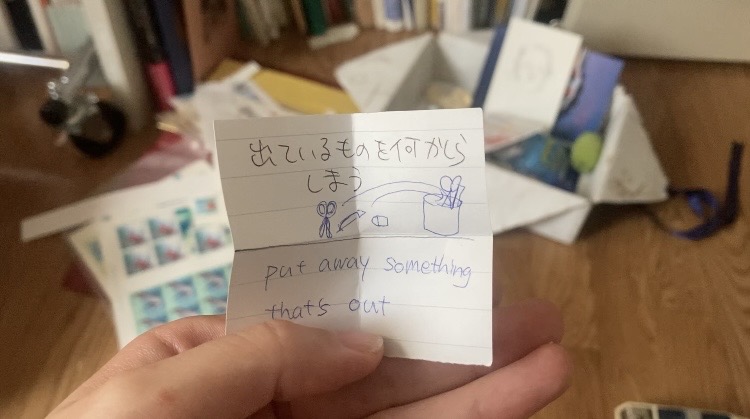 出ているものを何かしら
しまう
put away something
that's out